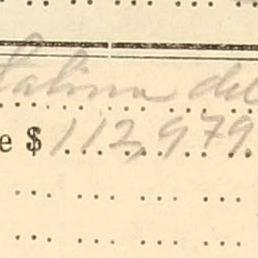 Salina del
e $ 112,979